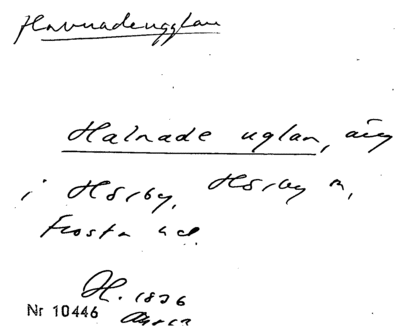 Havnadeugglan
Halnade uglan, äng
i Hörby, Hörby sn,
Frosta hd.
H. 1826
Nr 10446